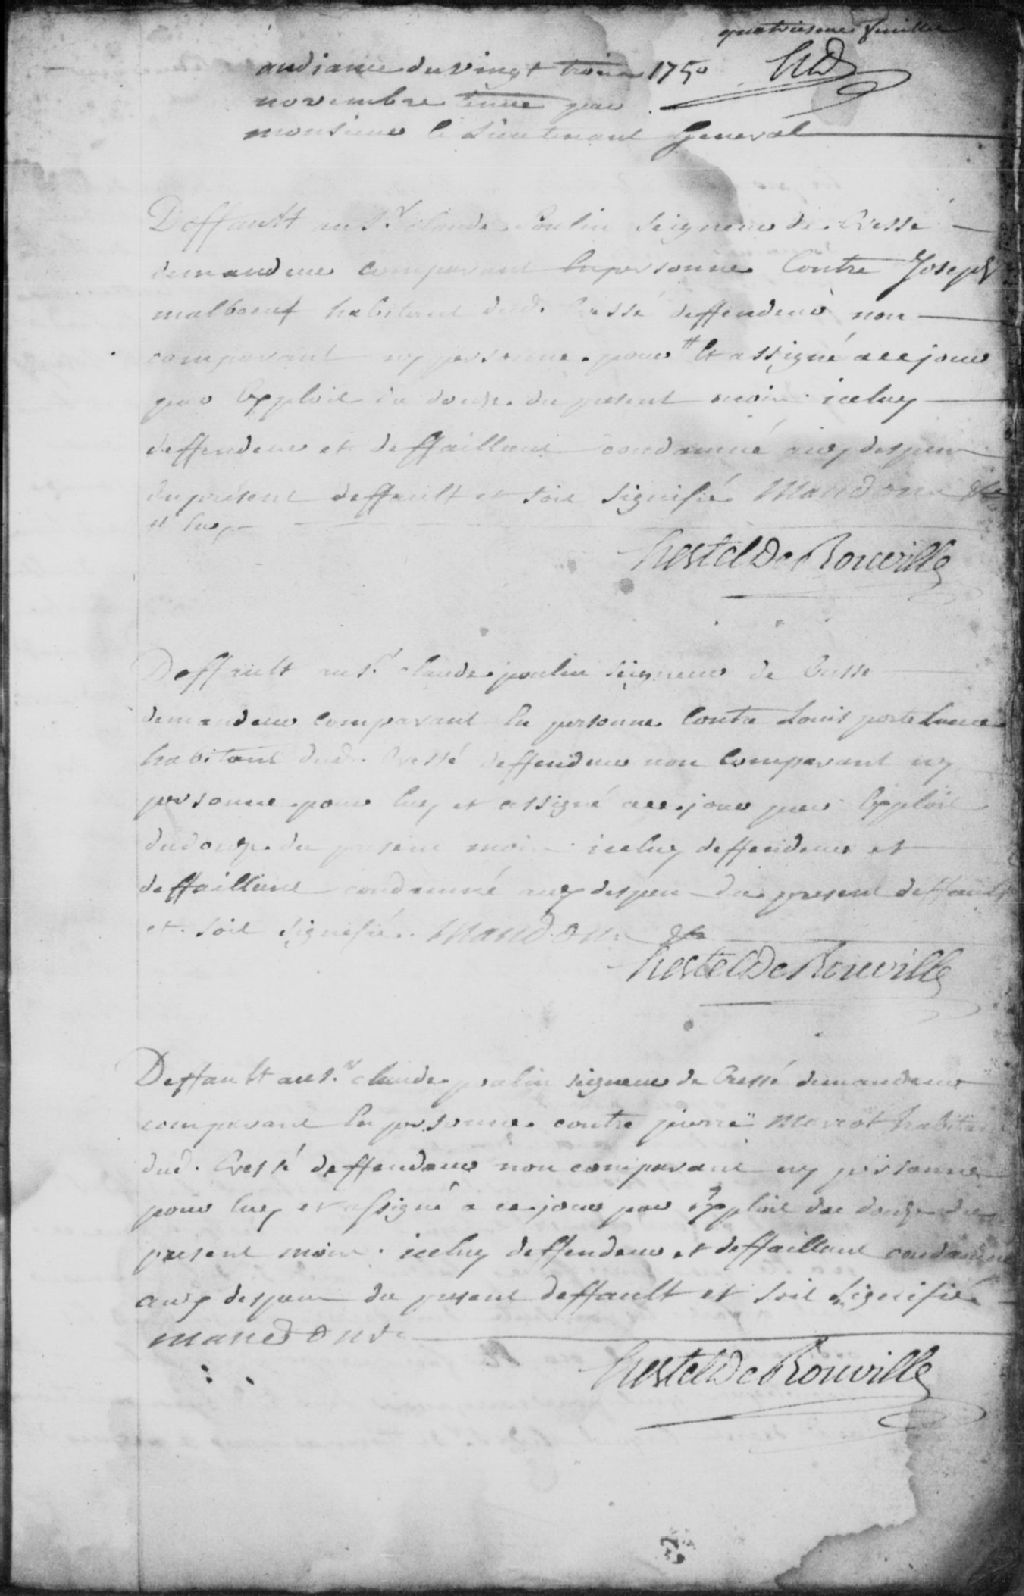 quatriesme feuillet
audiance du vingt trois 1750 hd
novembre tenue par
monsieur le Lieutenant General
Deffault au Sr. Claude Poulin Seigneur de Cressé
demandeur comparant En personne Contre Joseph
malboeuf habitant dud. Cressé deffendeur non
comparant ny personne pour # Et assigné a ce jour
par Exploit du douze du present mois iceluy
deffendeur et deffaillant condamné aux despens
du présent deffault et soit Signifié Mandons &c
# luy
hertel De Rouville
Deffault au Sr. claude poulin seigneur de Cressé
demandeur comparant En personne Contre Louis portelance
habitant dud. Cressé deffendeur non Comparant ny
personne pour luy et assigné a ce jour par Exploit
du douze du present mois iceluy deffendeur et
deffaillant condamné aux despens du present deffault
et soit signifié. Mandons &c
hertel De Rouville
Deffault au Sr. claude poulin signeur de Cressé demandeur
comparant En personne contre pierre Marcot habitant
dud. Cressé deffendeur non comparant ny personne
pour luy et assigné a ce jour par Exploit du douze du
present mois iceluy deffendeur et deffaillant condamné
aux despens du present deffault et soit Signifié
mandons
hertel De Rouville